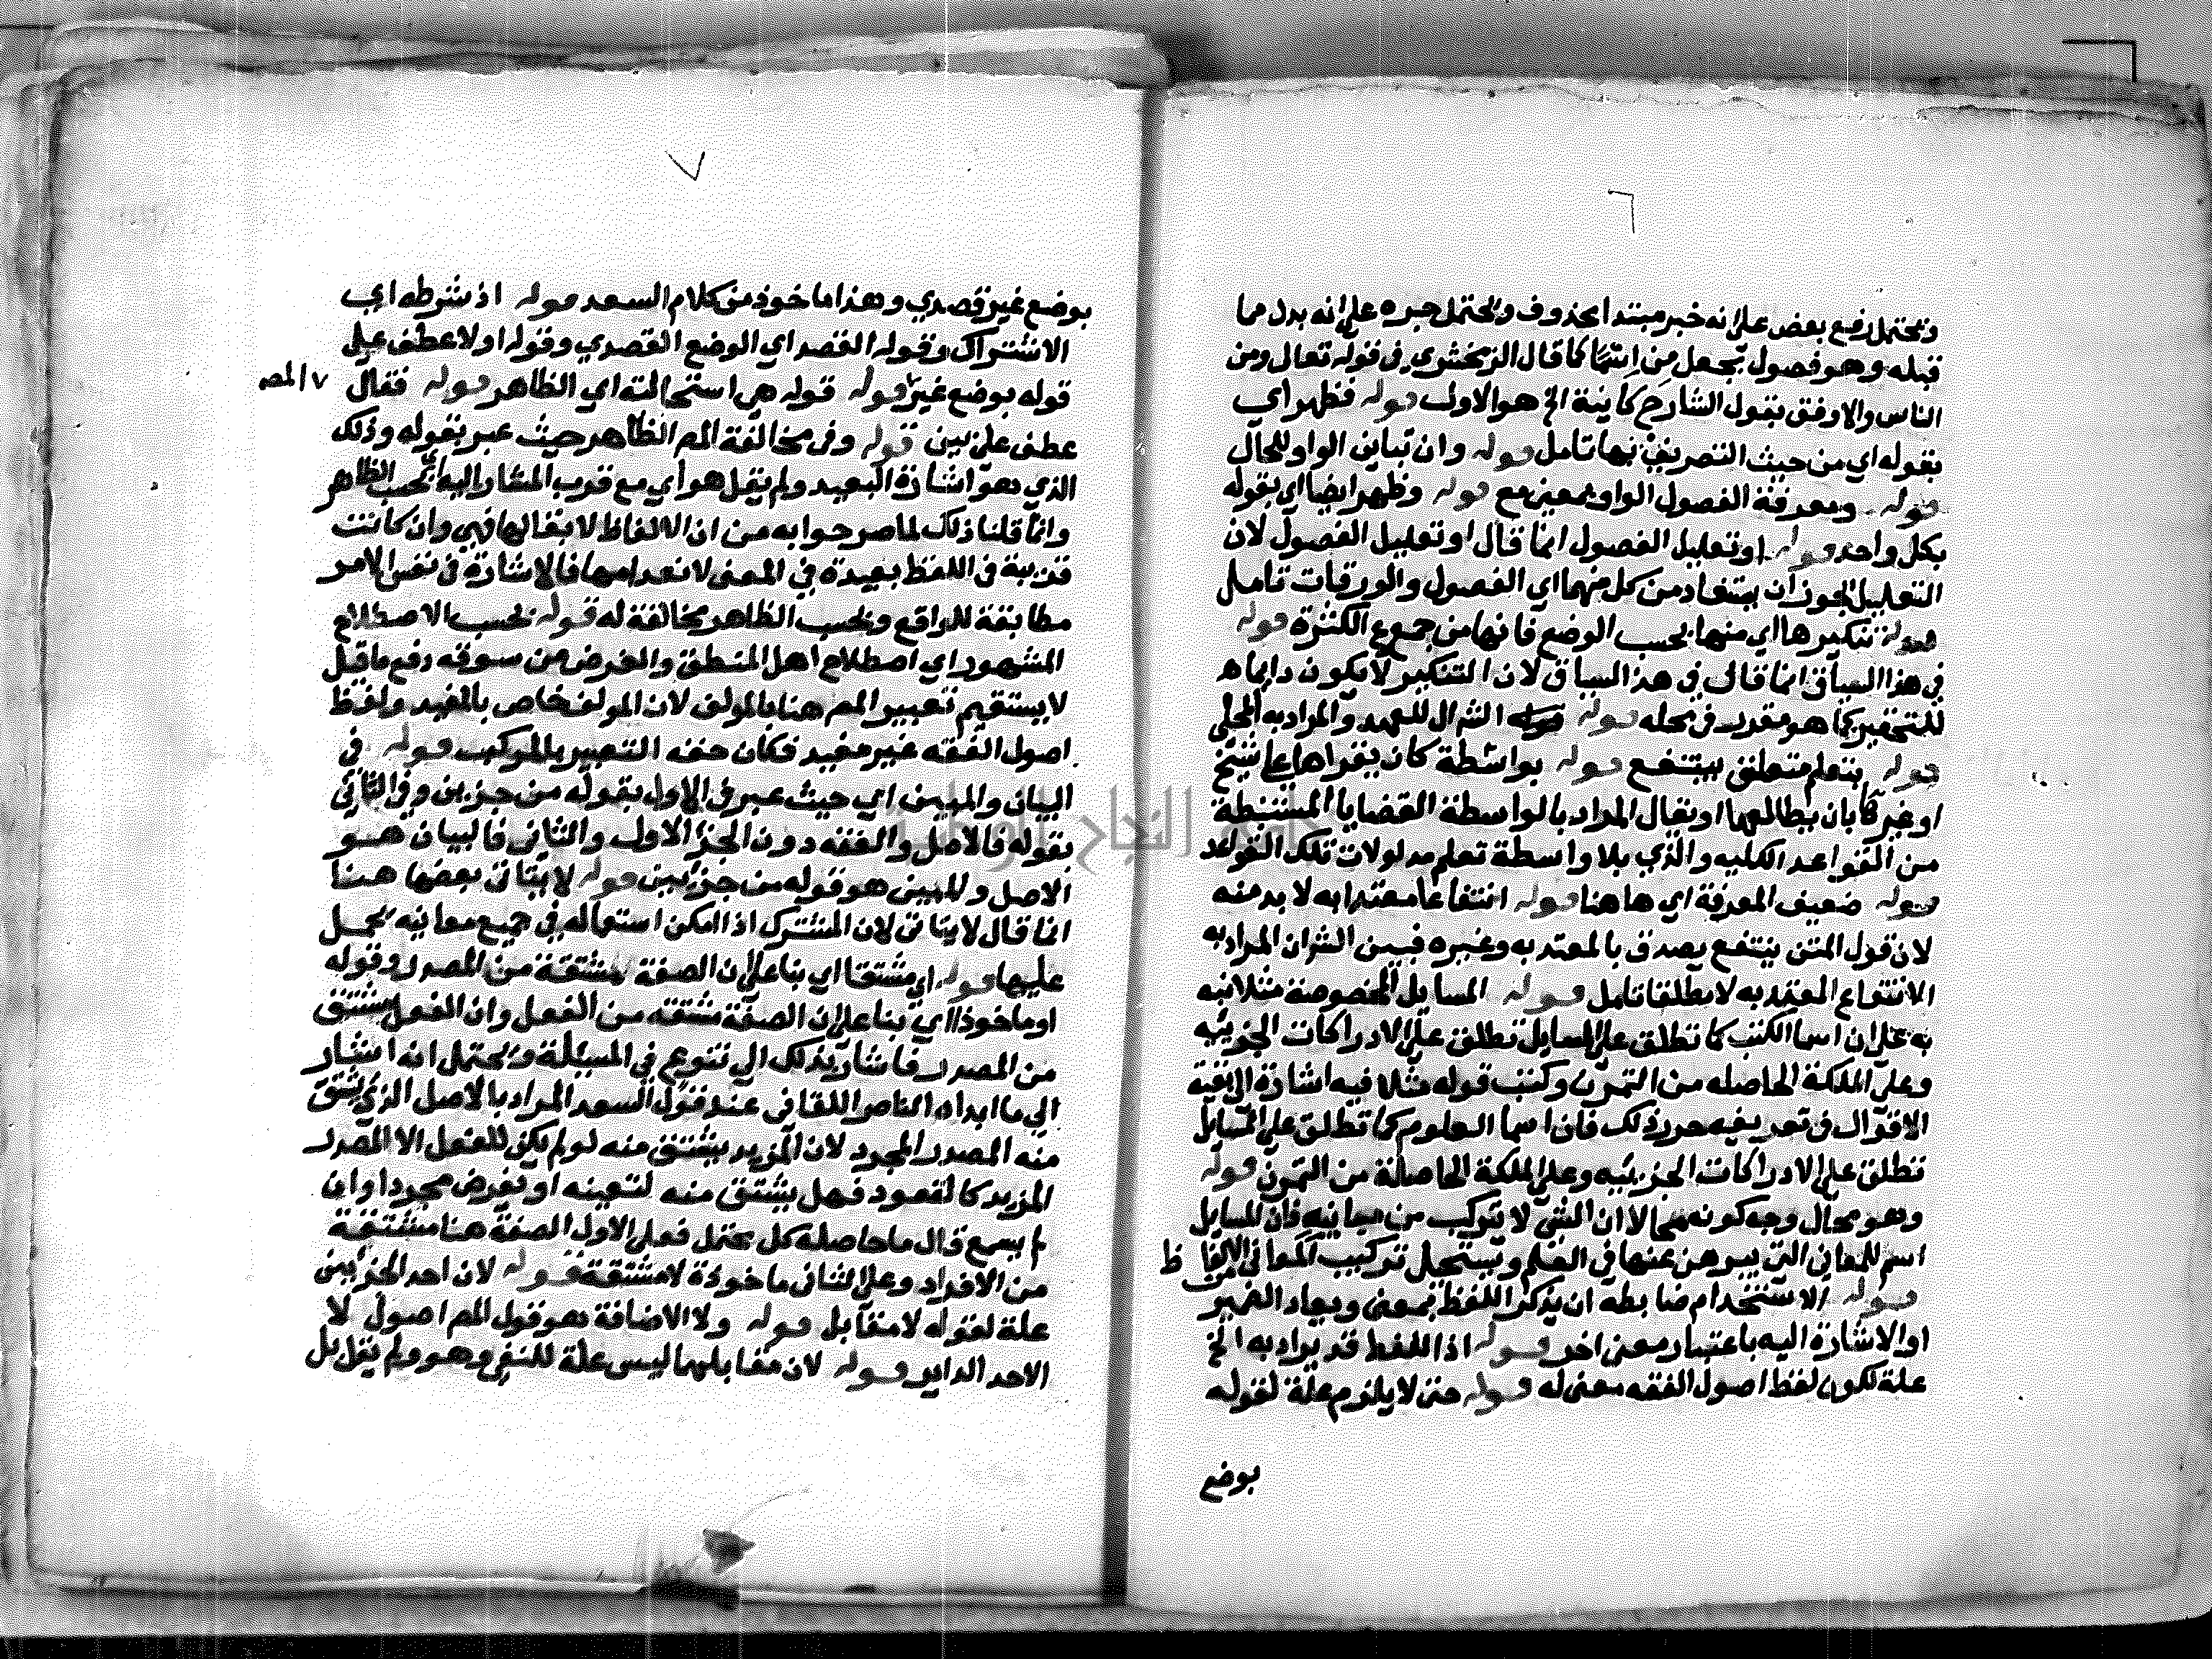 ٦
ويحتمل رفع بعض على انه خبر مبتدا محذوف ويحتمل جره على انه بدل مما
قبله وهو فصول بجعل من اسما كما قال الزمخشري في قوله تعالى ومن
الناس والاوفق بقول الشارح كاينة الخ هو الاول قوله فظهر اي
بقوله اي من حيث التصريف بها تامل قوله وان تباين الواو للحال
قوله ومعرفة الفصول الواو بمعنى مع قوله وظهر ايضا اي بقوله
بكل واحد قوله او تعليل الفصول انما قال او تعليل الفصول لان
التعليل يجوز ان يستفاد من كل منهما اي الفصول والورقات تامل
قوله تنكيرها اي منها بحسب الوضع فانها من جموع الكثرة قوله
في هذا السياق انما قال في هذا السياق لان التنكير لا يكون دايما
للتحقير كما هو مقرر في محله قوله الشرال للعهد والمراد به المحلي
قوله يتعلم متعلق بينتفع قوله بواسطة كان يقراها على شيخ
او غيره كان يطالعها او يقال المراد بالواسطة القضايا المستنبطة
من القواعد الكليه والذي بلا واسطة تعلم مدلولات تلك القواعد
قوله ضعيف المعرفة اي ها هنا قوله انتفاعا معتدا به لا بد منه
لان قول المتن ينتفع يصدق بالمعتد به وغيره فبين الشران المراد به
الانتفاع المعتد به لا مطلقا تامل قوله المسايل المخصوصة مثلا نبه
به على ان اسما الكتب كما تطلق على المسايل تطلق على الادراكات الجزييه
وعلى الملكة الحاصله من التمرن وكتب قوله مثلا فيه اشارة الى بقية
الاقوال في تعريفيه حرر ذلك فان اسما العلوم كما تطلق على المسايل
تطلق على الادراكات الجزييه وعلى الملكة الحاصلة من التمرن قوله
وهو محال وجه كونه محالا ان الشي لا يتركب من مباينه فان المسايل
اسم للمعاني التي يبرهن عنها في العلم ويستحيل تركيب المعاني من الالفاظ
قوله الاستخدام ضابطه ان يذكر اللفظ بمعنى ويعاد الضمير
او الاشارة اليه باعتبار معنى اخر قوله اذ اللفظ قد يراد به الخ
علة لكون لفظ اصول الفقه معنى له قوله حتى لا يلزم علة لقوله
بوضع
٧
بوضع غير قصدي وهذا ماخوذ من كلام السعد قوله اذ شرطه اي
الاشتراك وقوله القصد اي الوضع القصدي وقوله اولا عطف على
قوله بوضع غير قوله قوله هي استحالته اي الظاهر قوله فقال
٧ المص
عطف على بين قوله وفي مخالفة المم الظاهر حيث عبر بقوله وذلك
الذي هو اشارة البعيد ولم يقل هو اي مع قرب المشار اليه اي بحسب الظاهر
وانما قلنا ذلك لما صر جوابه من ان الالفاظ لا بقا لها فهي وان كانت
قريبة في اللفظ بعيدة في المعنى لانعدامها فالاشارة في نفس الامر
مطابقة للواقع وبحسب الظاهر مخالفة له قوله بحسب الاصطلاح
المشهور اي اصطلاح اهل المنطق والغرض من سوقه دفع ما قيل
لا يستقيم تعبير المم هنا بالمولف لان المولف خاص بالمفيد ولفظ
اصول الفقه غير مفيد فكان حقه التعبير بالمركب قوله في
البيان والمبين اي حيث عبر في الاول بقوله من جزين وفي الثاني
بقوله فالاصل والفقه دون الجز الاول والثاني فالبيان هو
الاصل والمبين هو قوله من جزئين قوله لا يتاتى بعضها هنا
انما قال لا يتاتى لان المشترك اذا امكن استعماله في جميع معانيه يحمل
عليها قوله اي مشتقا اي بنا على ان الصفة مشتقة من المصدر وقوله
او ماخوذا اي بنا على ان الصفة مشتقه من الفعل وان الفعل مشتق
من المصدر فاشار بذلك الى تنوع في المسئلة ويحتمل انه اشار
الى ما ابداه الناصر اللقاني عند قول السعد المراد بالاصل الذي يشتق
منه المصدر المجرد لان المزيد يشتق منه لو لم يكن للفعل الا المصدر
المزيد كالقعود فهل يشتق منه لتعينه او يفرض مجردا وان
لم يسمع قال ما حاصله كل محتمل فعلى الاول الصفة هنا مشتقة
من الافراد وعلى الثاني ماخوذة لا مشتقة قوله لان احد الجزئين
علة لقوله لا مقابل قوله ولا الاضافة هو قول المم اصول لا
الاحد الداير قوله لان مقابلهما ليس علة للنفي وهو ولم يقل بل